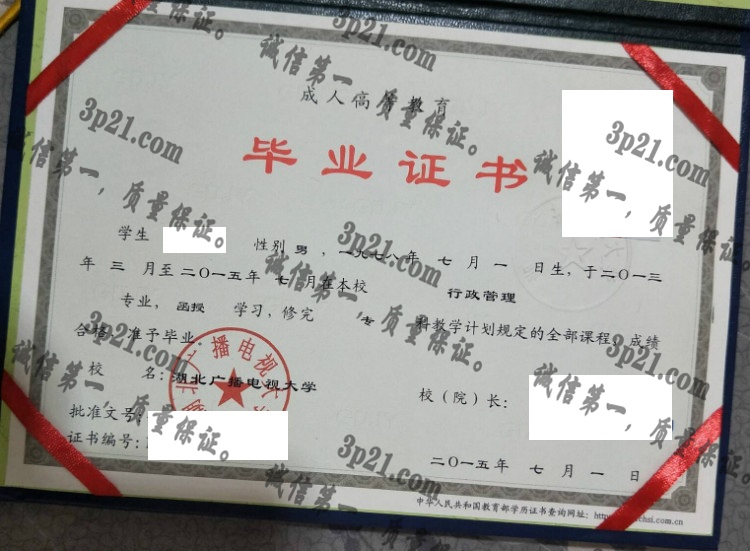 成人高等教育
毕业证书
学生 性别 男，一九七八年 七月一日生，于二〇一三
年 三 月至二〇一五年 七月在本校 行政管理
专业，函授 学习，修完 专 科教学计划规定的全部课程，成绩
合格，准予毕业。
校 名：湖北广播电视大学
校（院）长：
批准文号
证书编号：
二〇一五年 七月一日
中华人民共和国教育部学历证书查询网址：http
chsi.com.cn
湖北广播电视大
3p21.com
诚信第一，质量保证。
3p21.com
诚信第一，质量保证。
3p21.com
诚信第一，质量保证。
3p21.com
诚信第一，质量保证。
3p21.com
诚信第一，质量保证。
3p21.com
诚信第一，质量保证。
3p21.com
诚信第一，质量保证。